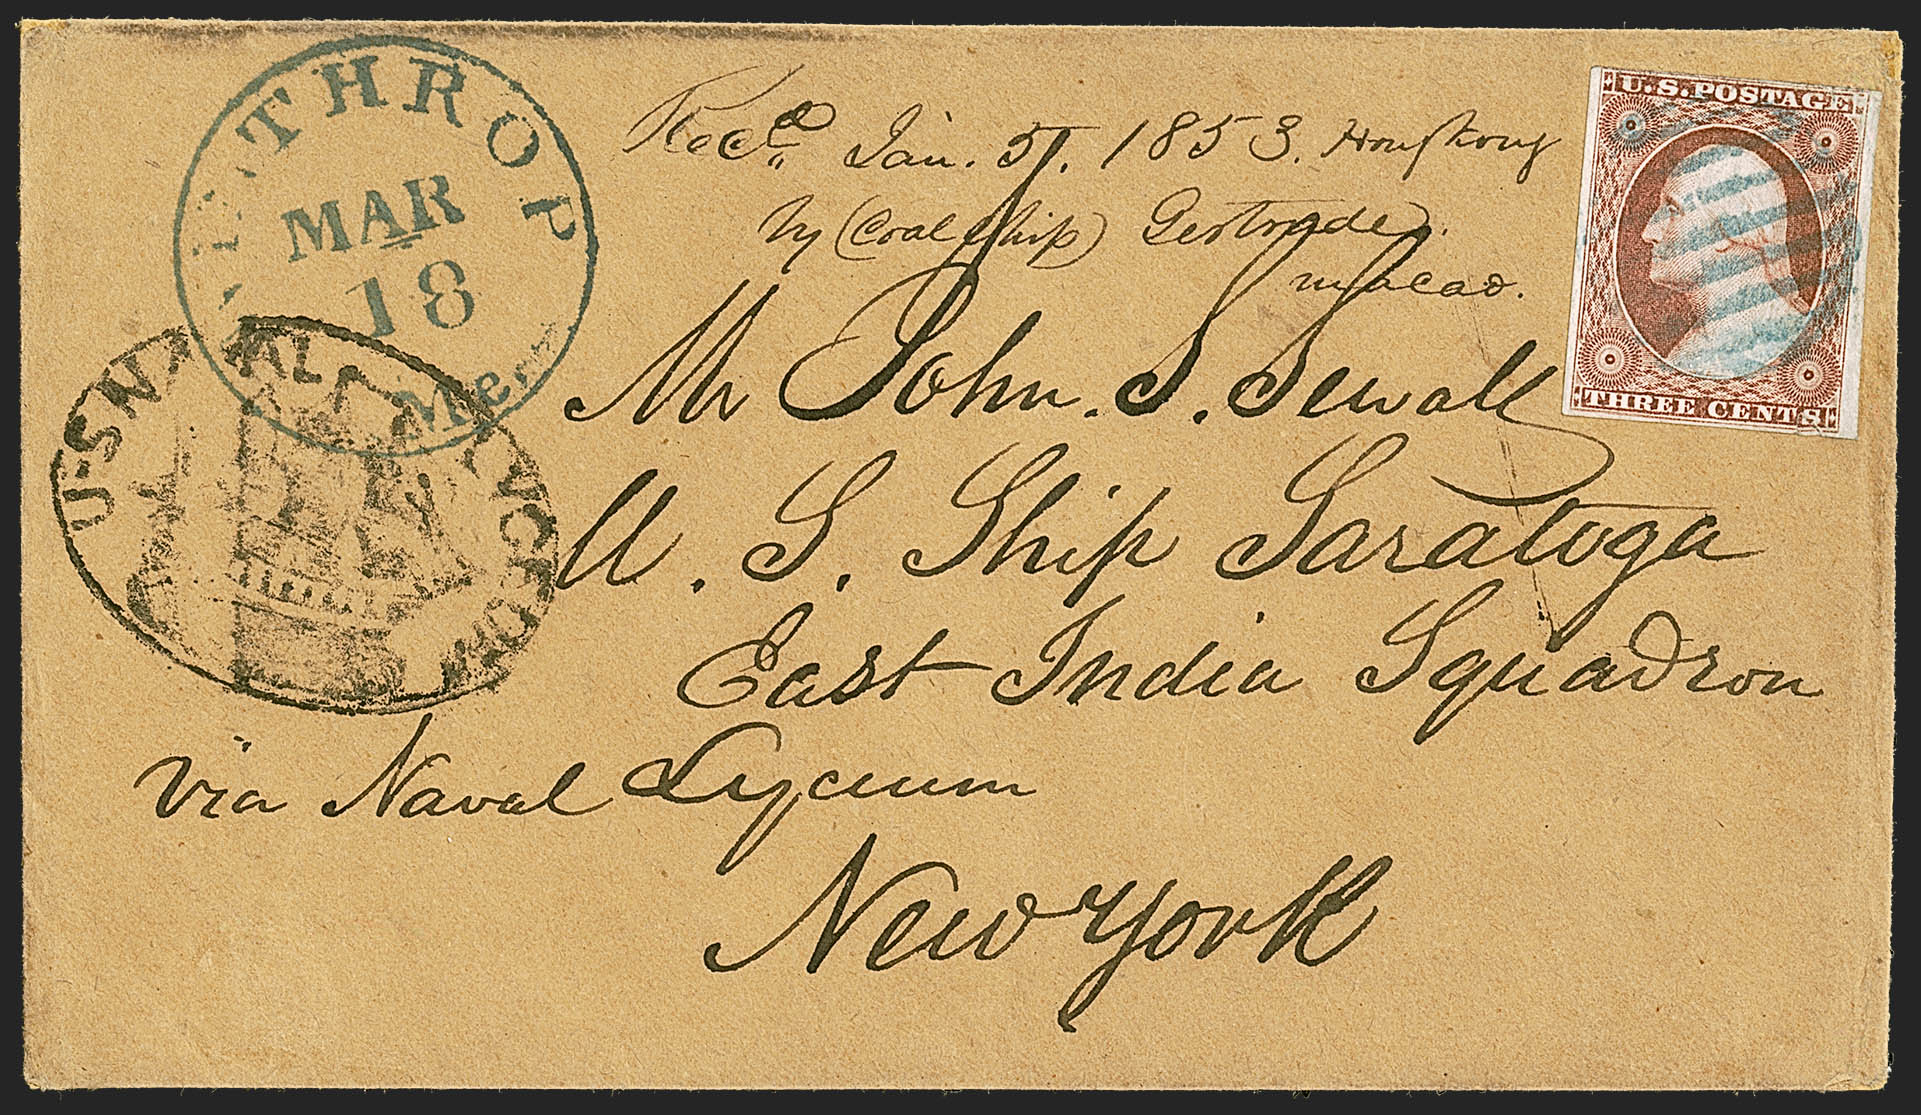 WINTHROP
MAR
18
Me.
U.S. NAVAL LYCEUM
Recd. Jan. 51. 1853. Hongkong
by (Coal Ship) Gertrude.
macao.
U.S. POSTAGE
THREE CENTS
Mr John. S. Sewall
U. S. Ship Saratoga
East India Squadron
via Naval Lyceum
New York